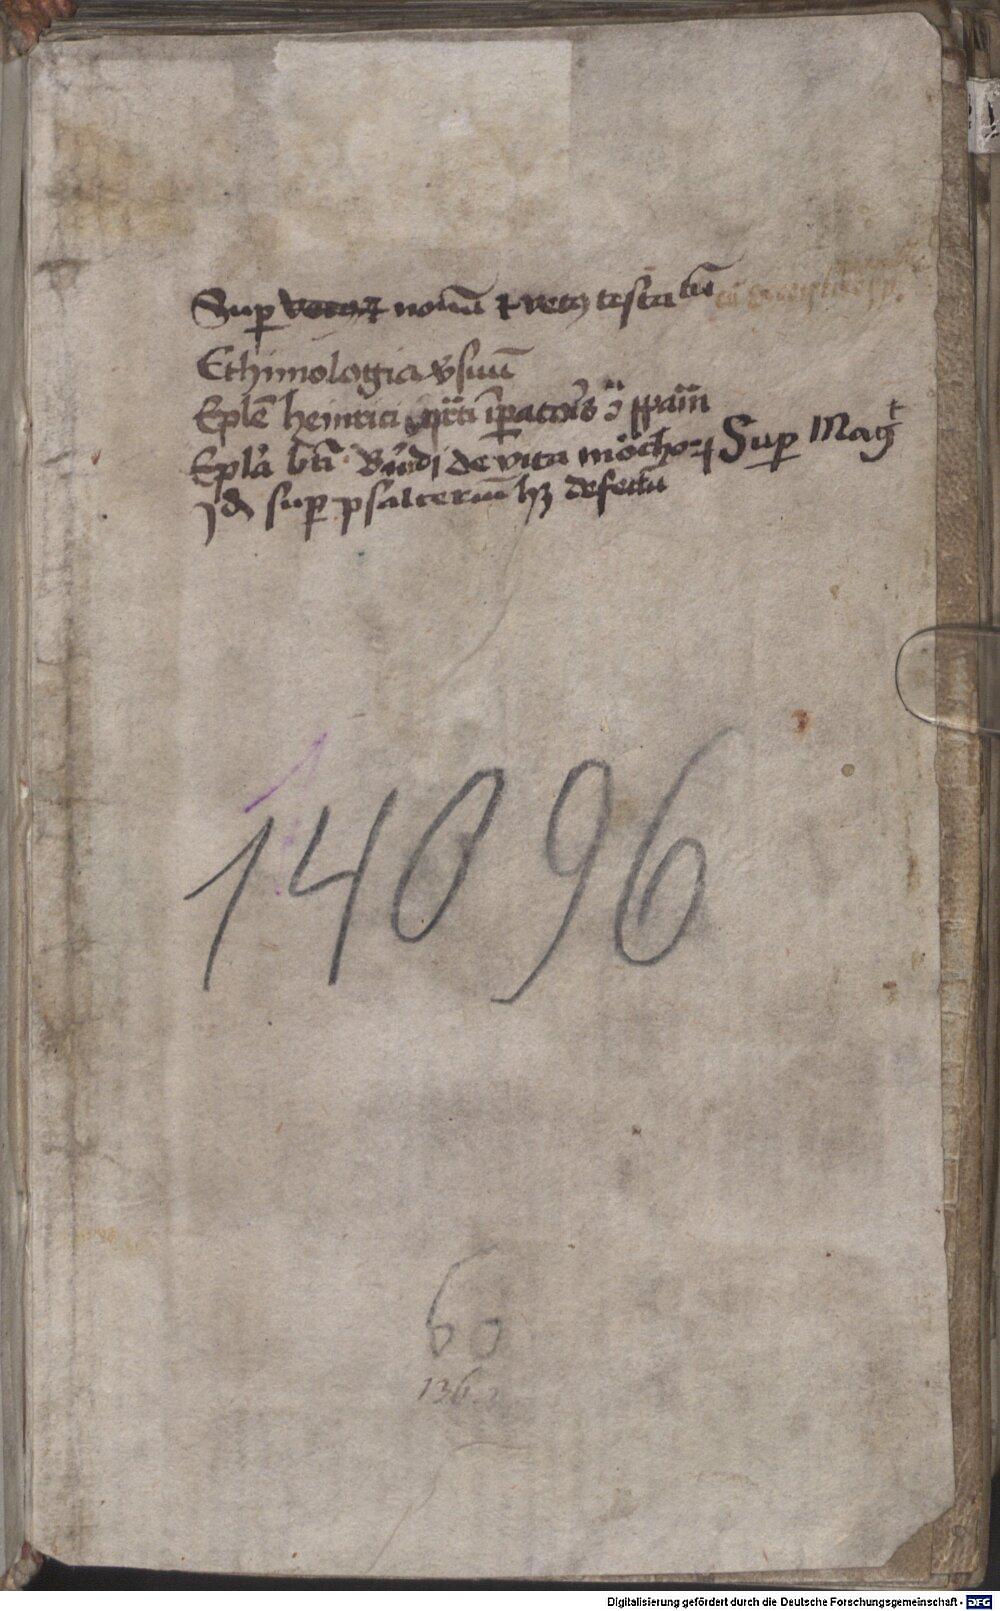 Sup nouū ⁊ vetꝯ testatū
Ethimologia vsuū
Eplē heinrici qrti īpatoris ꝯ̄ ppam
Epla bti B'ndi de vita mōchoꝝ Sup Mag^t
Jd sup psalteriū hꝫ defectū
14096
60
136
Digitalisierung gefördert durch die Deutsche Forschungsgemeinschaft - DFG